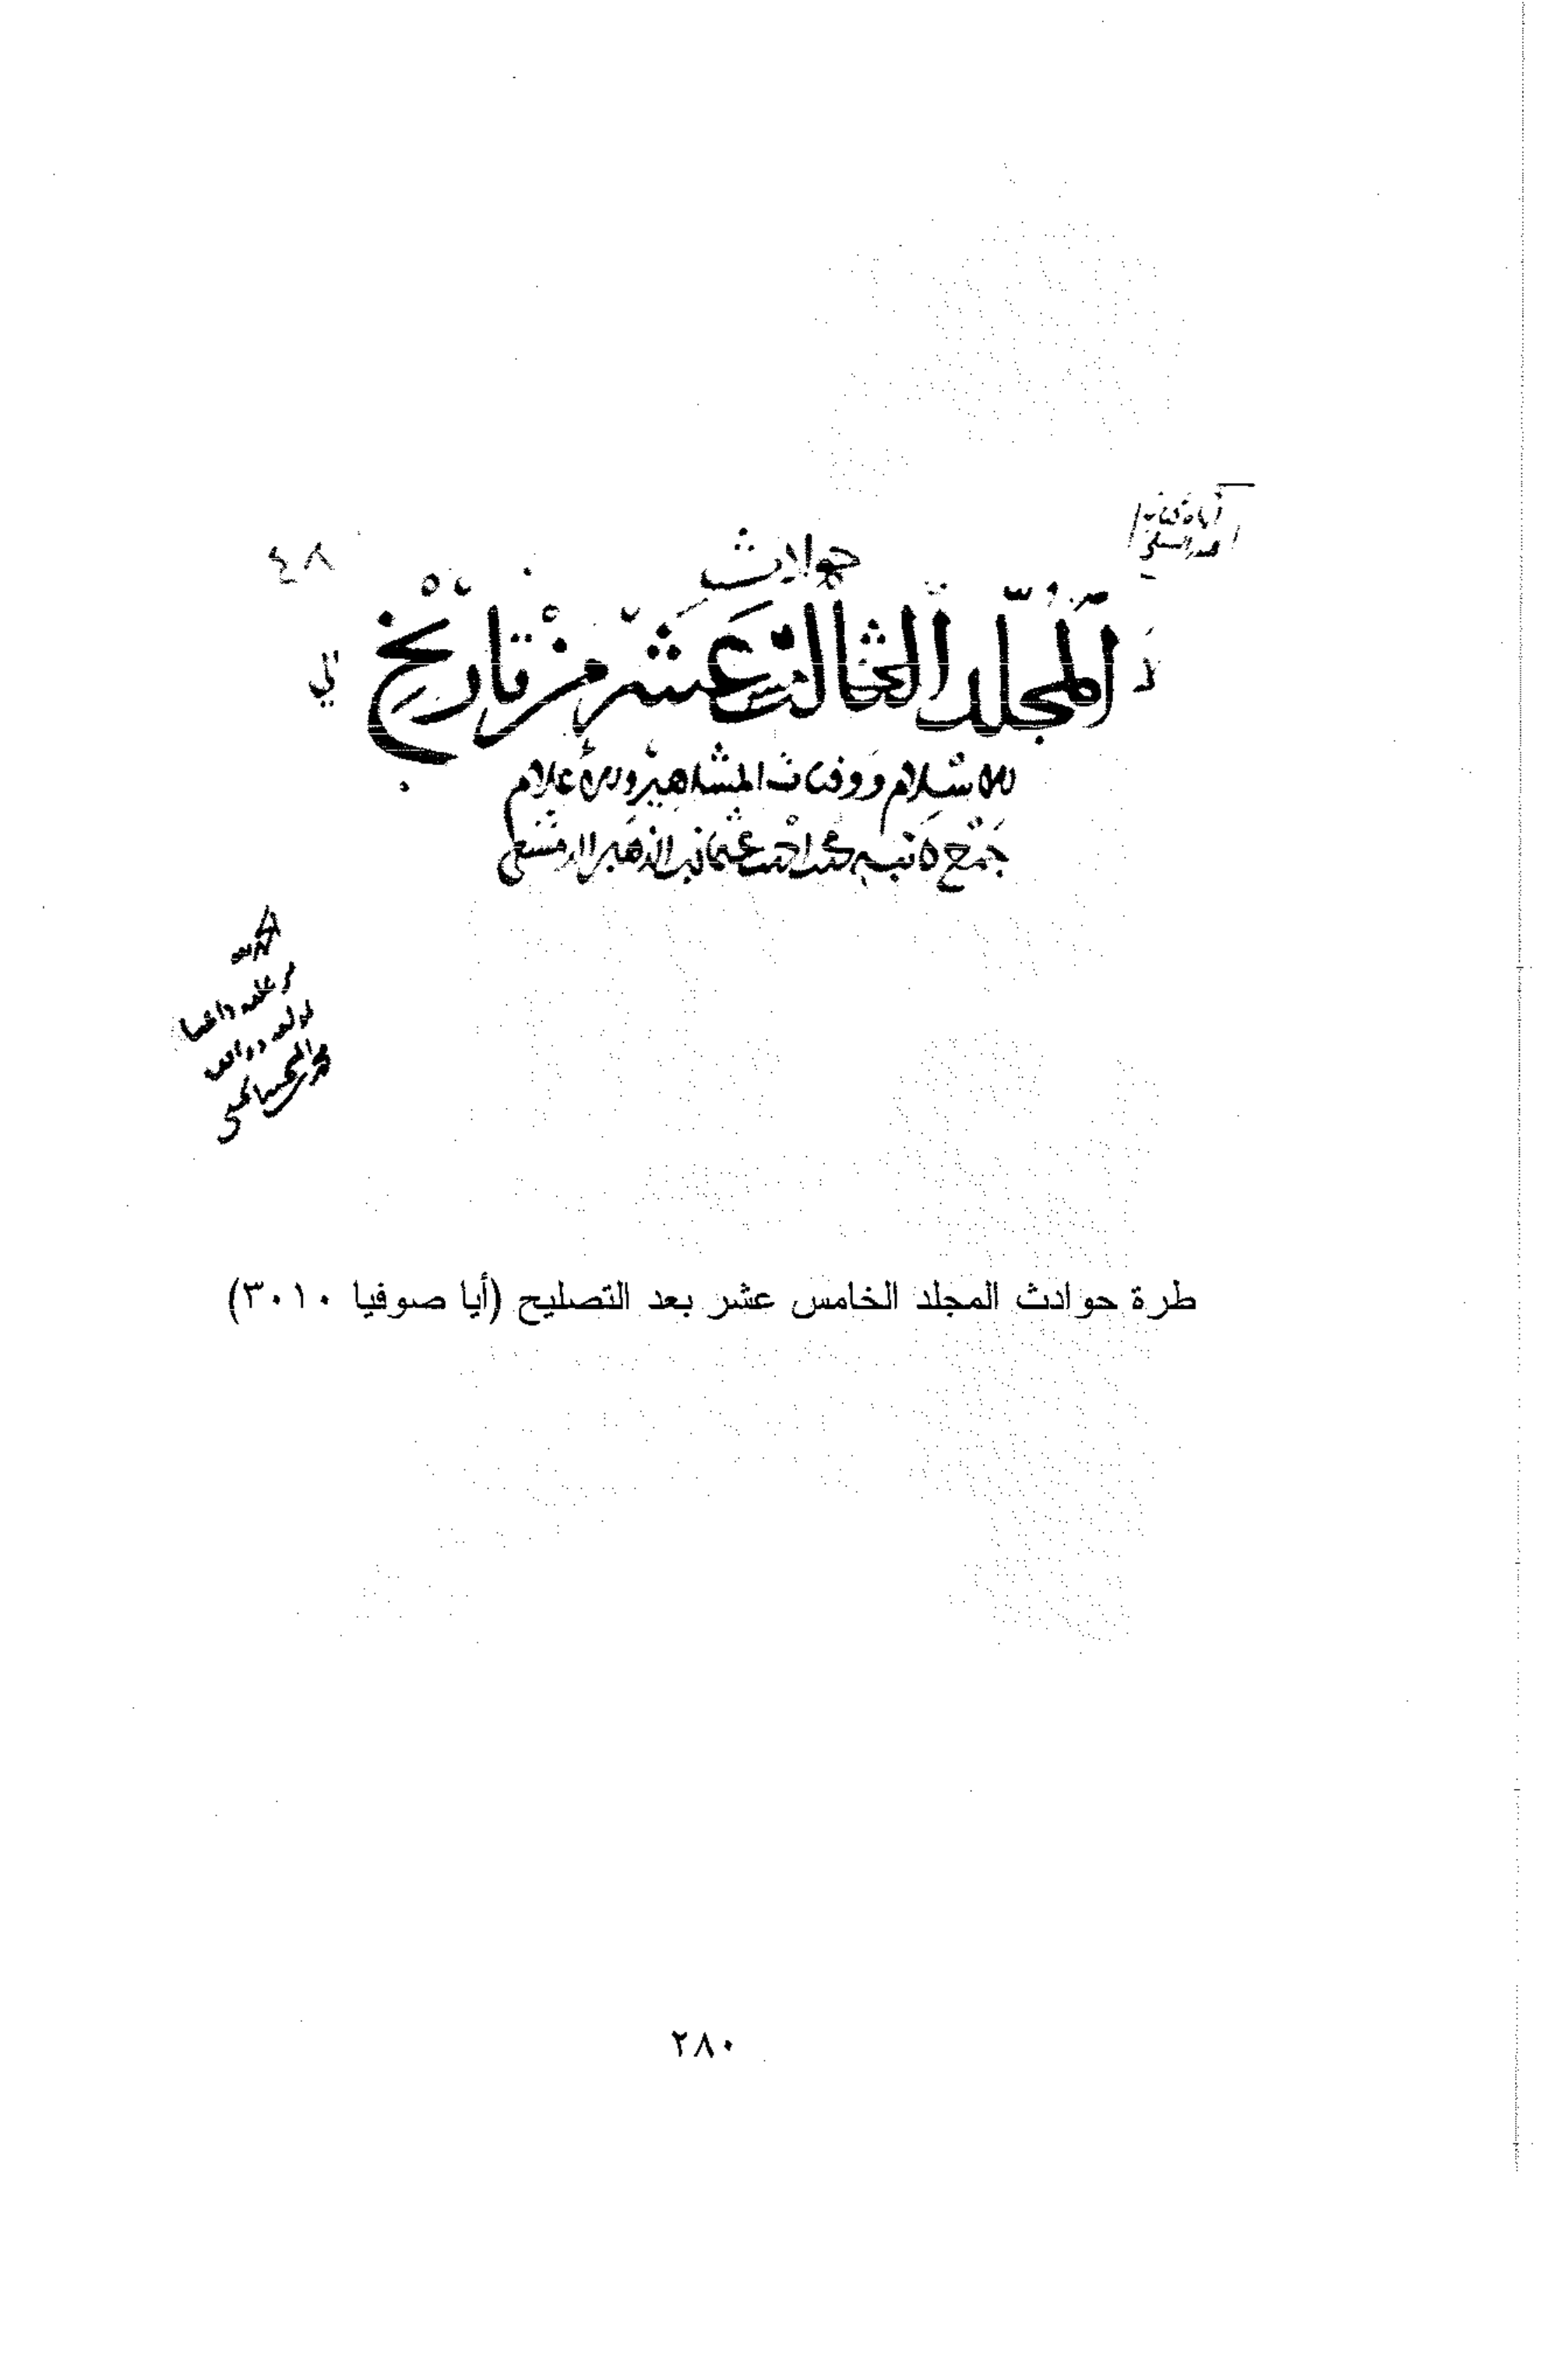 حوادث
٨٤
المجلد الثالث عشر من تاريخ
الاسلام ووفيات المشاهير والاعلام
جمع كاتبه محمد بن احمد بن عثمان بن الذهبي الدمشقي
طرة حوادث المجلد الخامس عشر بعد التصليح (أيا صوفيا ٣٠١٠)
٢٨٠